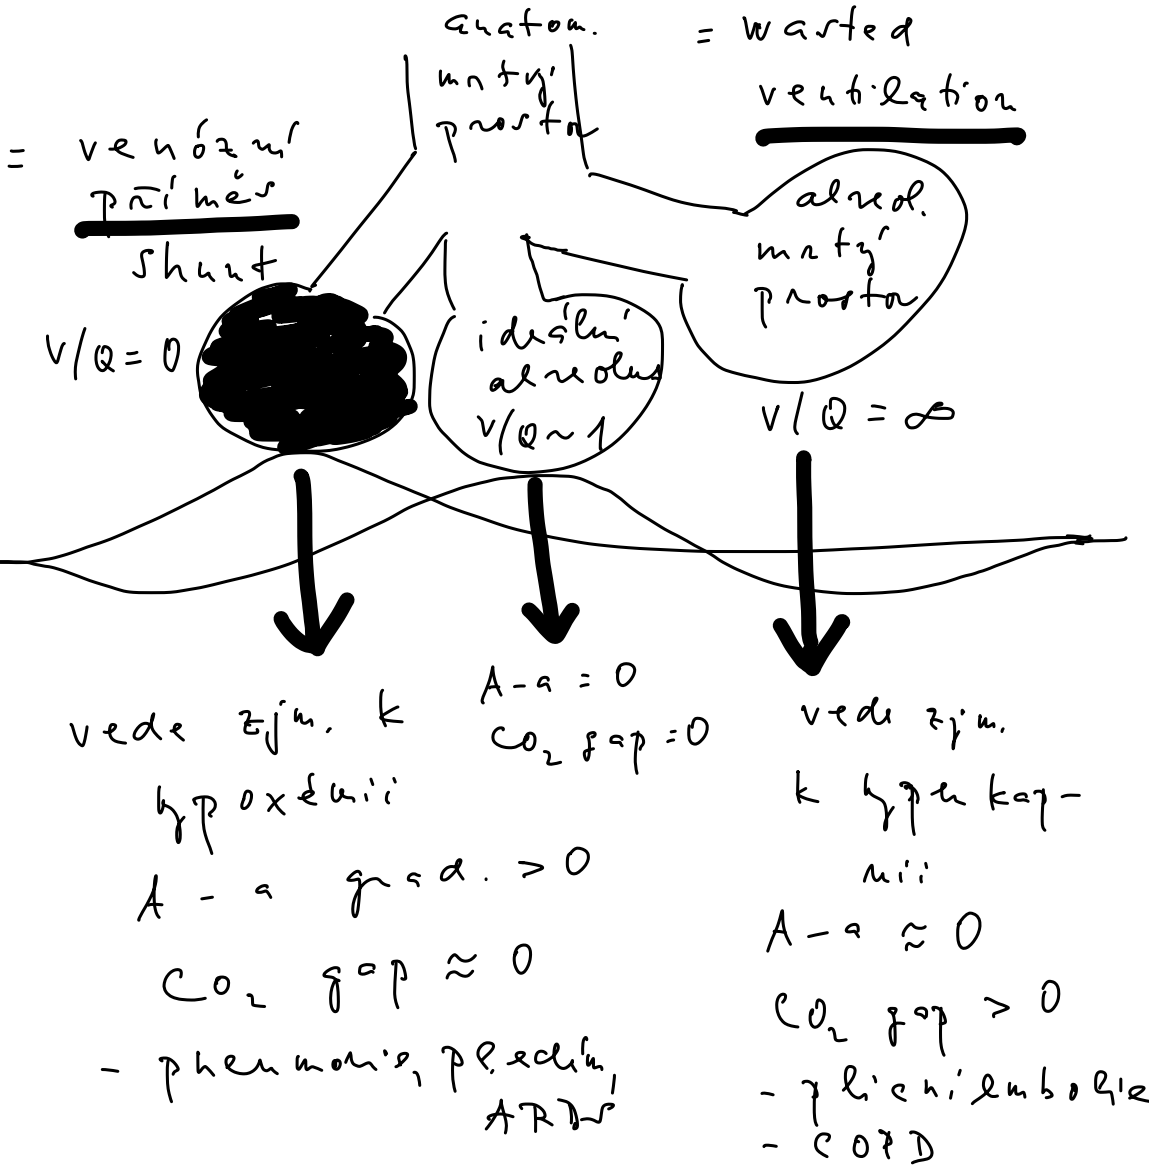 anatom.
mrtvý
prostor
= wasted
ventilation
= venózní
příměs
shunt
V/Q = 0
ideální
alveolus
V/Q ~ 1
alveol.
mrtvý
prostor
V/Q = ∞
vede zjm. k
hypoxémii
A - a grad. > 0
CO₂ gap ≈ 0
- pneumonie, pl. edém,
ARDS
A-a = 0
CO₂ gap = 0
vede zjm.
k hyperkap-
nii
A-a ≈ 0
CO₂ gap > 0
- plicní embolie
- COPD